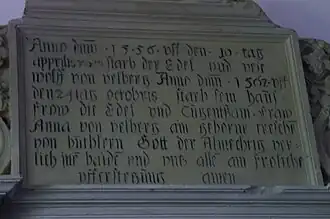 Anno dmni · 1556 · vff den · 10 · tag
apprilis starb der Edel und vest
wolff von velberg Anno dmni · 1562 · vff
den 24 tag octobris starb sein haus
fraw die Edel und Tugentsam fraw
Anna von velberg ein geborne
von Gott der Almechtig ver
lich und vns alle ein froliche
vfferstehung amen